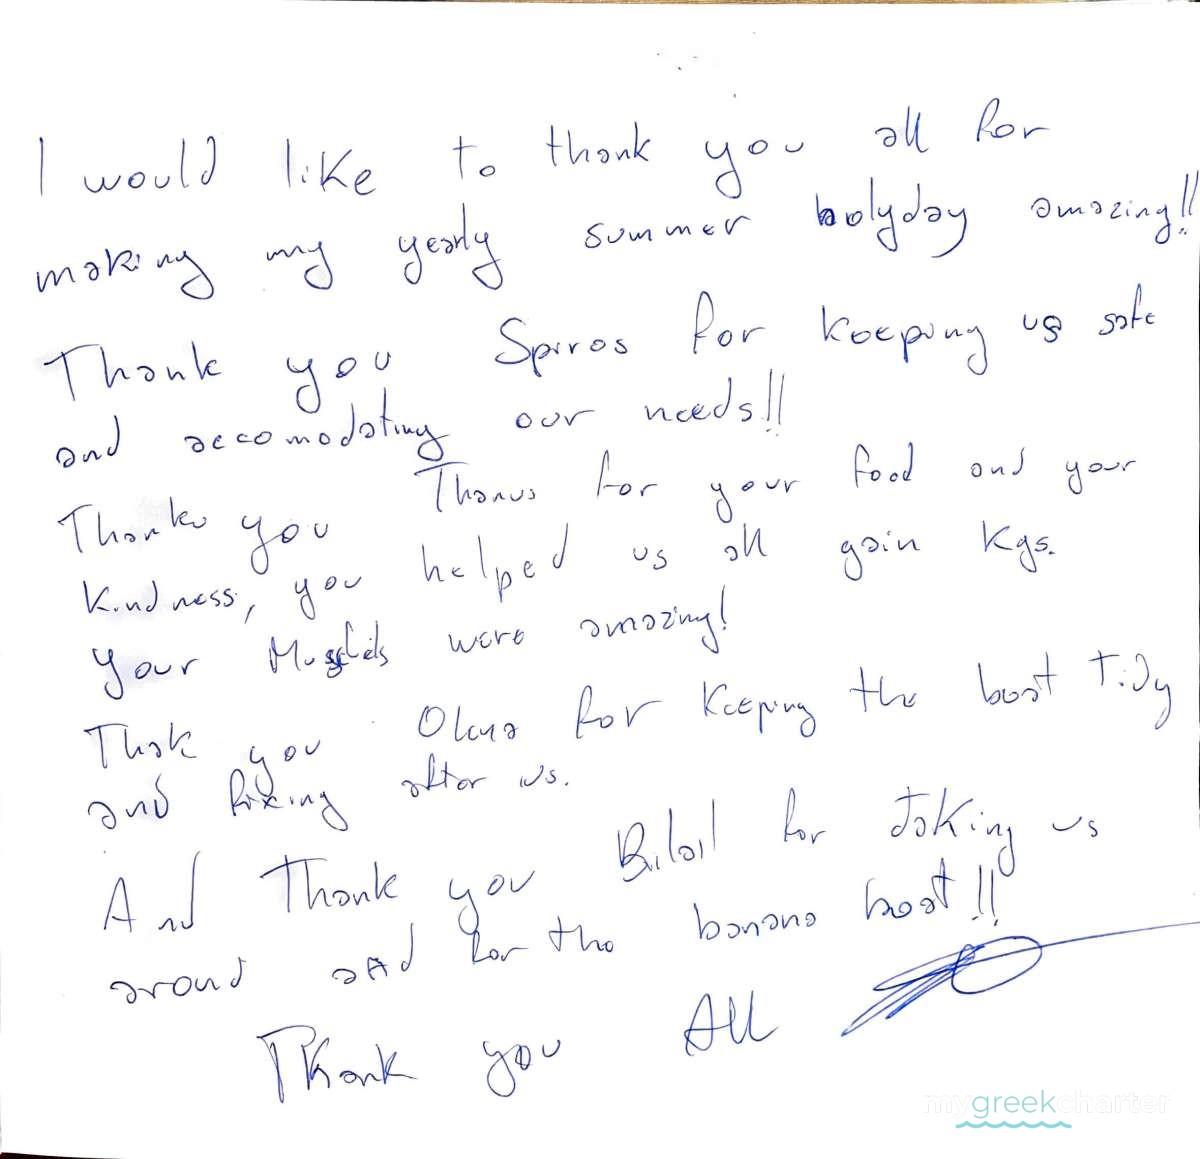 I would like to thank you all for
making my yearly summer holyday amazing!!
Thank you Spiros for keeping us safe
and accomodating our needs!!
Thank you Thanos for your food and your
kindness, you helped us all gain kgs.
your Mussels were amazing!
Thak you Olena for keeping the boat tidy
and fixing after us.
And Thank you Bilal for taking us
around and for the banana boat!!
Thank you All
mygreekcharter